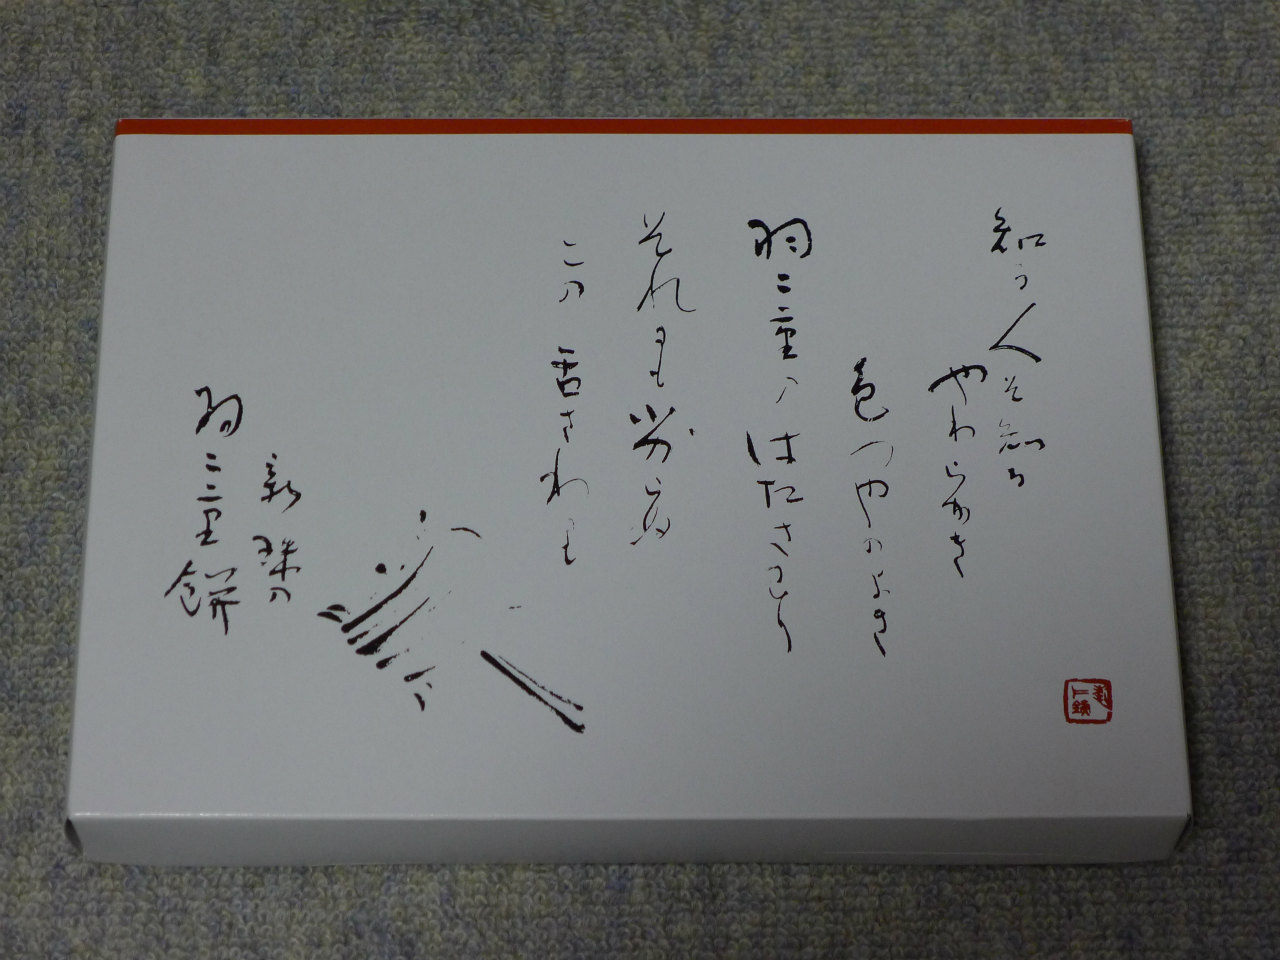 知る人そ知る
やわらかき
色つやのよき
羽二重のはたさわり
それにも劣らぬ
この舌さわり
新珠の
羽二重餅